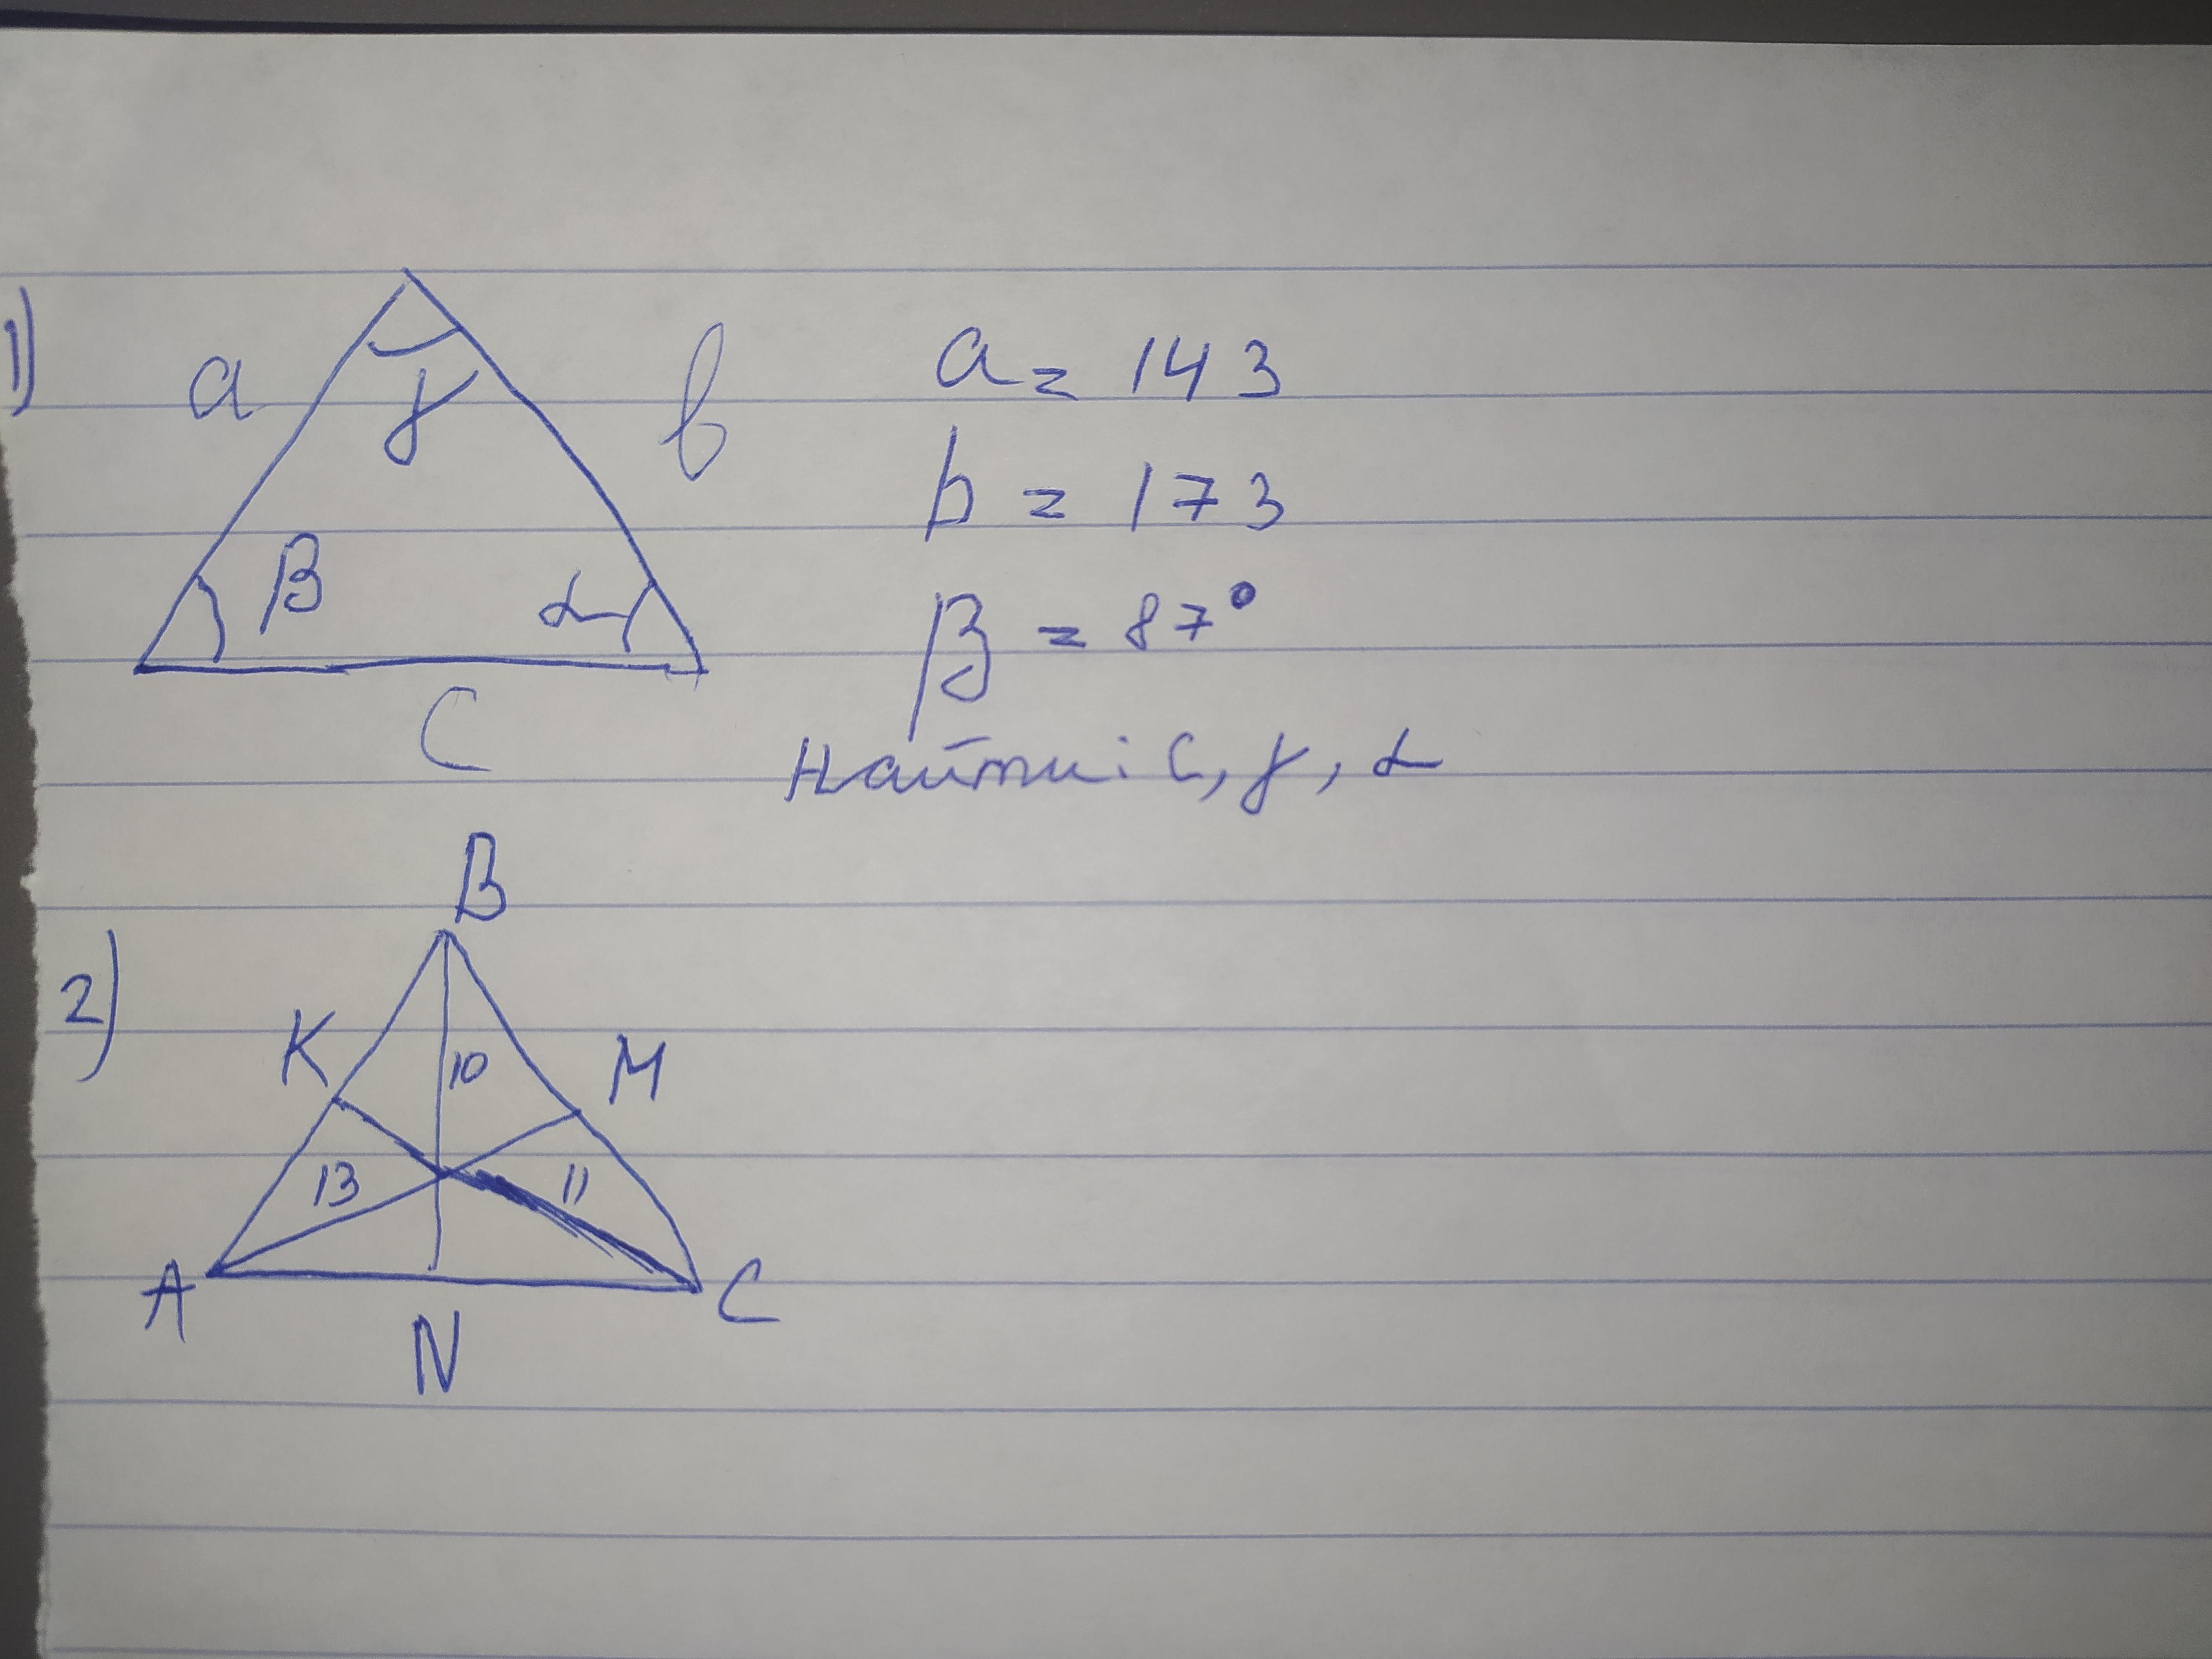 1)
a γ b
β α
C
a = 143
b = 173
β = 87°
Найти: C, γ, α
2)
B
K 10 M
13 11
A C
N